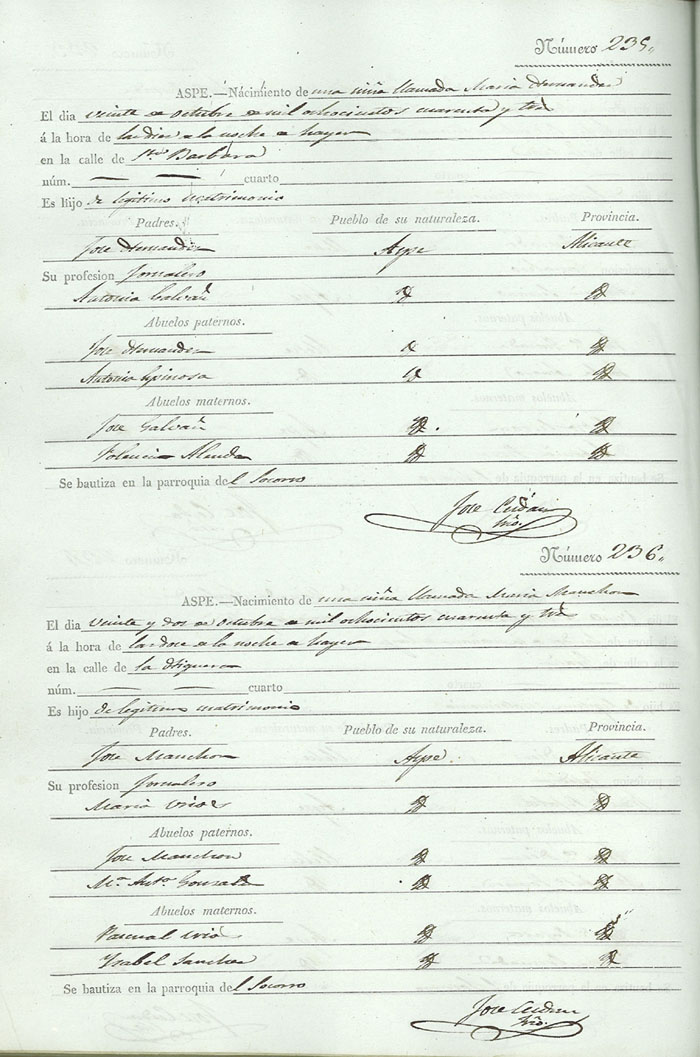 Número 235.
ASPE.—Nacimiento de una niña llamada Maria Hernandez
El dia veinte de Octubre de mil ochocientos cuarenta y tres
á la hora de las diez de la noche de hayer
en la calle de Sta Barbara
núm. — — cuarto
Es hijo de legitimo matrimonio
Padres. Pueblo de su naturaleza. Provincia.
Jose Hernandez Aspe Alicante
Su profesion Jornalero
Antonia Galvañ Yd Yd
Abuelos paternos.
Jose Hernandez Yd Yd
Antonia Espinosa Yd Yd
Abuelos maternos.
Jose Galvañ Yd Yd
Yd Yd
Se bautiza en la parroquia del Socorro
Jose
Srio.
Número 236.
ASPE.—Nacimiento de una niña llamada Maria Manchon
El dia veinte y dos de Octubre de mil ochocientos cuarenta y tres
á la hora de las doce de la noche de hayer
en la calle de la Higuera
núm. — — cuarto
Es hijo de legitimo matrimonio
Padres. Pueblo de su naturaleza. Provincia.
Jose Manchon Aspe Alicante
Su profesion Jornalero
Maria Yd Yd
Abuelos paternos.
Jose Manchon Yd Yd
Ma. Anta. Gonzalez Yd Yd
Abuelos maternos.
Pascual Yd Yd
Ysabel Sanchez Yd Yd
Se bautiza en la parroquia del Socorro
Jose
Srio.